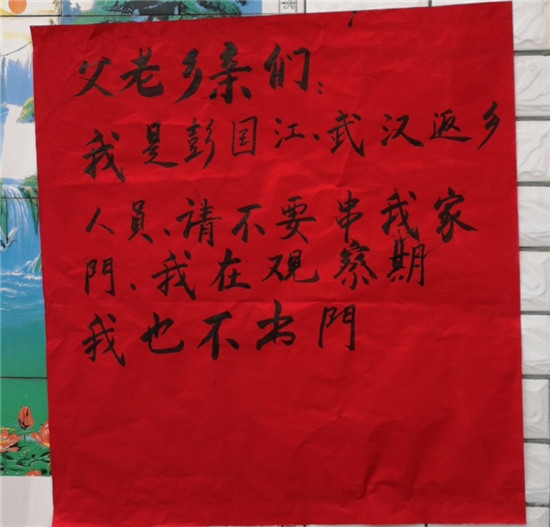 父老乡亲们：
我是彭国江、武汉返乡
人員、请不要串我家
門、我在观察期
我也不出門